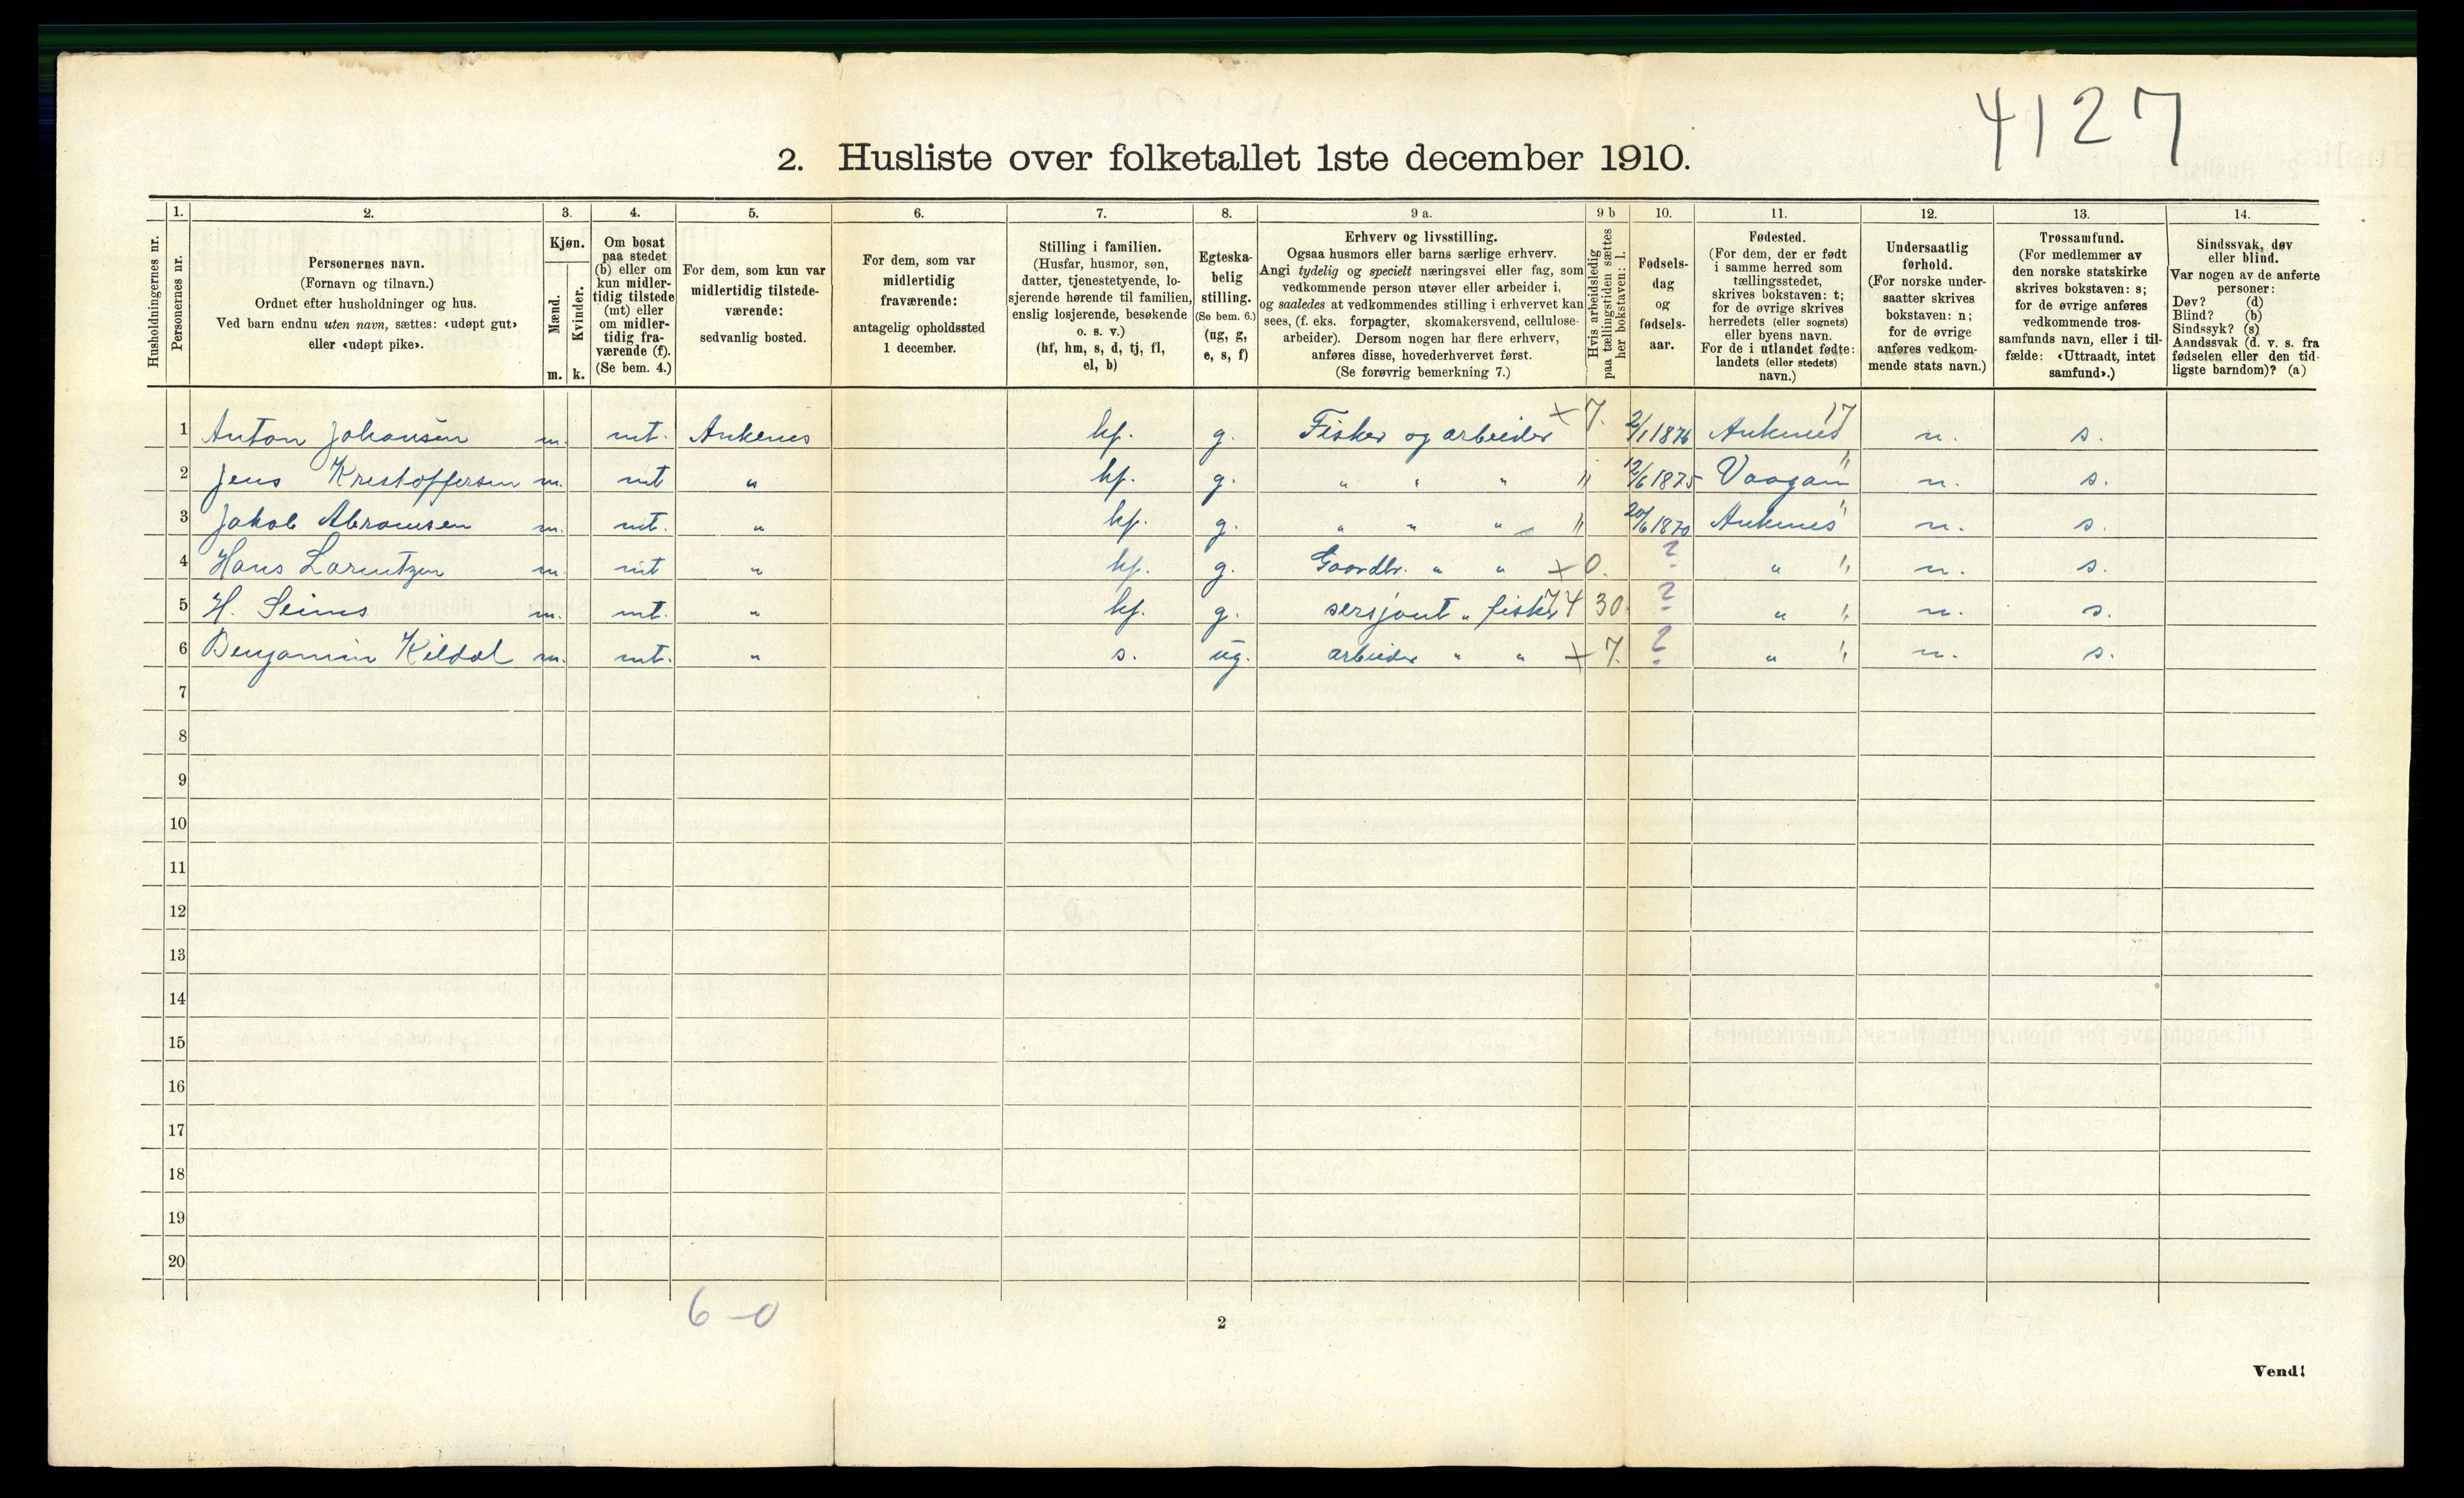 4127
2. Husliste over folketallet 1ste december 1910.
Husholdningernes nr.
1. Personernes nr.
2. Personernes navn.
(Fornavn og tilnavn.)
Ordnet efter husholdninger og hus.
Ved barn endnu uten navn, sættes: «udøpt gut»
eller «udøpt pike».
3. Kjøn.
Mænd. m.
Kvinder. k.
4. Om bosat
paa stedet
(b) eller om
kun midler-
tidig tilstede
(mt) eller
om midler-
tidig fra-
værende (f).
(Se bem. 4.)
5. For dem, som kun var
midlertidig tilstede-
værende:
sedvanlig bosted.
6. For dem, som var
midlertidig
fraværende:
antagelig opholdssted
1 december.
7. Stilling i familien.
(Husfar, husmor, søn,
datter, tjenestetyende, lo-
sjerende hørende til familien,
enslig losjerende, besøkende
o. s. v.)
(hf, hm, s, d, tj, fl,
el, b)
8. Egteska-
belig
stilling.
(Se bem. 6.)
(ug, g,
e, s, f)
9 a. Erhverv og livsstilling.
Ogsaa husmors eller barns særlige erhverv.
Angi tydelig og specielt næringsvei eller fag, som
vedkommende person utøver eller arbeider i,
og saaledes at vedkommendes stilling i erhvervet kan
sees, (f. eks. forpagter, skomakersvend, cellulose-
arbeider). Dersom nogen har flere erhverv,
anføres disse, hovederhvervet først.
(Se forøvrig bemerkning 7.)
9 b Hvis arbeidsledig
paa tællingstiden sættes
her bokstaven: l.
10. Fødsels-
dag
og
fødsels-
aar.
11. Fødested.
(For dem, der er født
i samme herred som
tællingsstedet,
skrives bokstaven: t;
for de øvrige skrives
herredets (eller sognets)
eller byens navn.
For de i utlandet fødte:
landets (eller stedets)
navn.)
12. Undersaatlig
forhold.
(For norske under-
saatter skrives
bokstaven: n;
for de øvrige
anføres vedkom-
mende stats navn.)
13. Trossamfund.
(For medlemmer av
den norske statskirke
skrives bokstaven: s;
for de øvrige anføres
vedkommende tros-
samfunds navn, eller i til-
fælde: «Uttraadt, intet
samfund».)
14. Sindssvak, døv
eller blind.
Var nogen av de anførte
personer:
Døv? (d)
Blind? (b)
Sindssyk? (s)
Aandssvak (d. v. s. fra
fødselen eller den tid-
ligste barndom)? (a)
1 Anton Johansen m. mt. Ankenes hf. g. Fisker og arbeider + 7. 2/1 1876 Ankenes 17 n. s.
2 Jens Kristoffersen m. mt " hf. g. " " " " 12/6 1875 Vaagan " n. s.
3 Jakob Abramsen m. mt. " hf. g. " " " " 20/6 1870 Ankenes " n. s.
4 Hans Lorentzen m. mt " hf. g. Gaardbr. " " + 0. ? " " n. s.
5 H. Seines m. mt. " hf. g. sersjant " fisker 74 30. ? " " n. s.
6 Benjamin Kildal m. mt. " s. ug. arbeider " " + 7. ? " " n. s.
7
8
9
10
11
12
13
14
15
16
17
18
19
20
6-0
2
Vend!